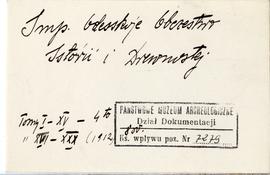 Imp. Odesskije Obczestwo
Istorii i Drewnostej
Tomy I - XV - 4to
" XVI - XXX (1912) 8vo.
PAŃSTWOWE MUZEUM ARCHEOLOGICZNE
Dział Dokumentacji
Ks. wpływu poz. Nr 7279